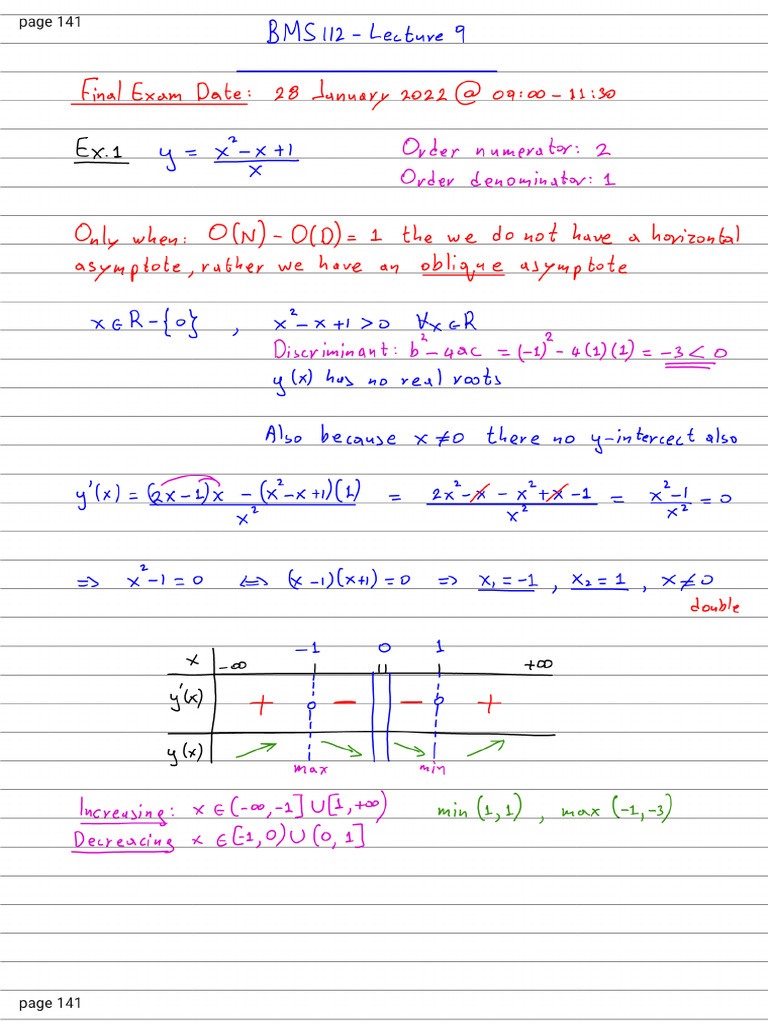 page 141
BMS 112 - Lecture 9
Final Exam Date: 28 January 2022 @ 09:00 - 11:30
Ex.1 y = (x² - x + 1)/x Order numerator: 2
Order denominator: 1
Only when: O(N) - O(D) = 1 the we do not have a horizontal
asymptote, rather we have an oblique asymptote
x ∈ R - {0} , x² - x + 1 > 0 ∀x ∈ R
Discriminant: b² - 4ac = (-1)² - 4(1)(1) = -3 < 0
y(x) has no real roots
Also because x ≠ 0 there no y-intercect also
y'(x) = ((2x-1)x - (x²-x+1)(1))/x² = (2x² - x - x² + x - 1)/x² = (x²-1)/x² = 0
⇒ x² - 1 = 0 ⇔ (x-1)(x+1) = 0 ⇒ x₁ = -1 , x₂ = 1 , x ≠ 0
double
x -∞ -1 0 1 +∞
y'(x) + o - - o +
y(x) ↗ ↘ ↘ ↗
max min
Increasing: x ∈ (-∞, -1] ∪ [1, +∞) min (1, 1) , max (-1, -3)
Decreacing x ∈ [-1, 0) ∪ (0, 1]
page 141